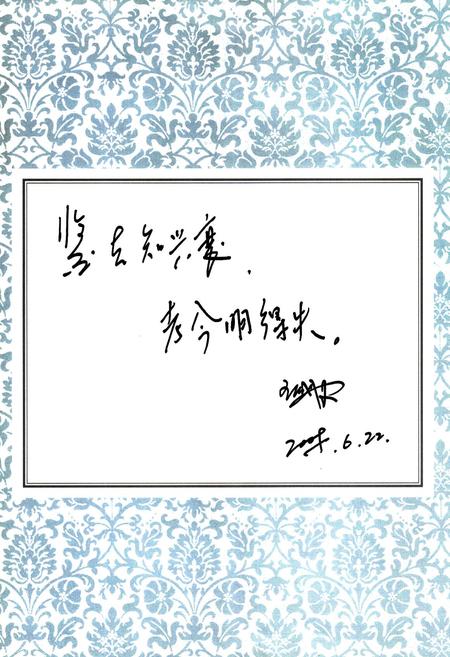 鉴古知兴衰，
考今明得失。
2005.6.22.